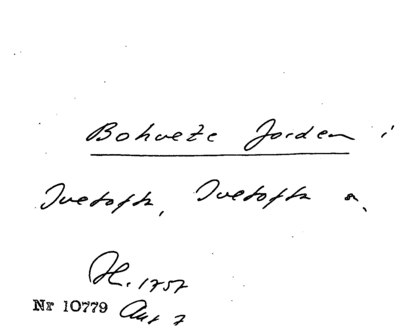 Bohveze Jorden i
Ivetofta, Ivetofta s.
H. 1757
Nr 10779